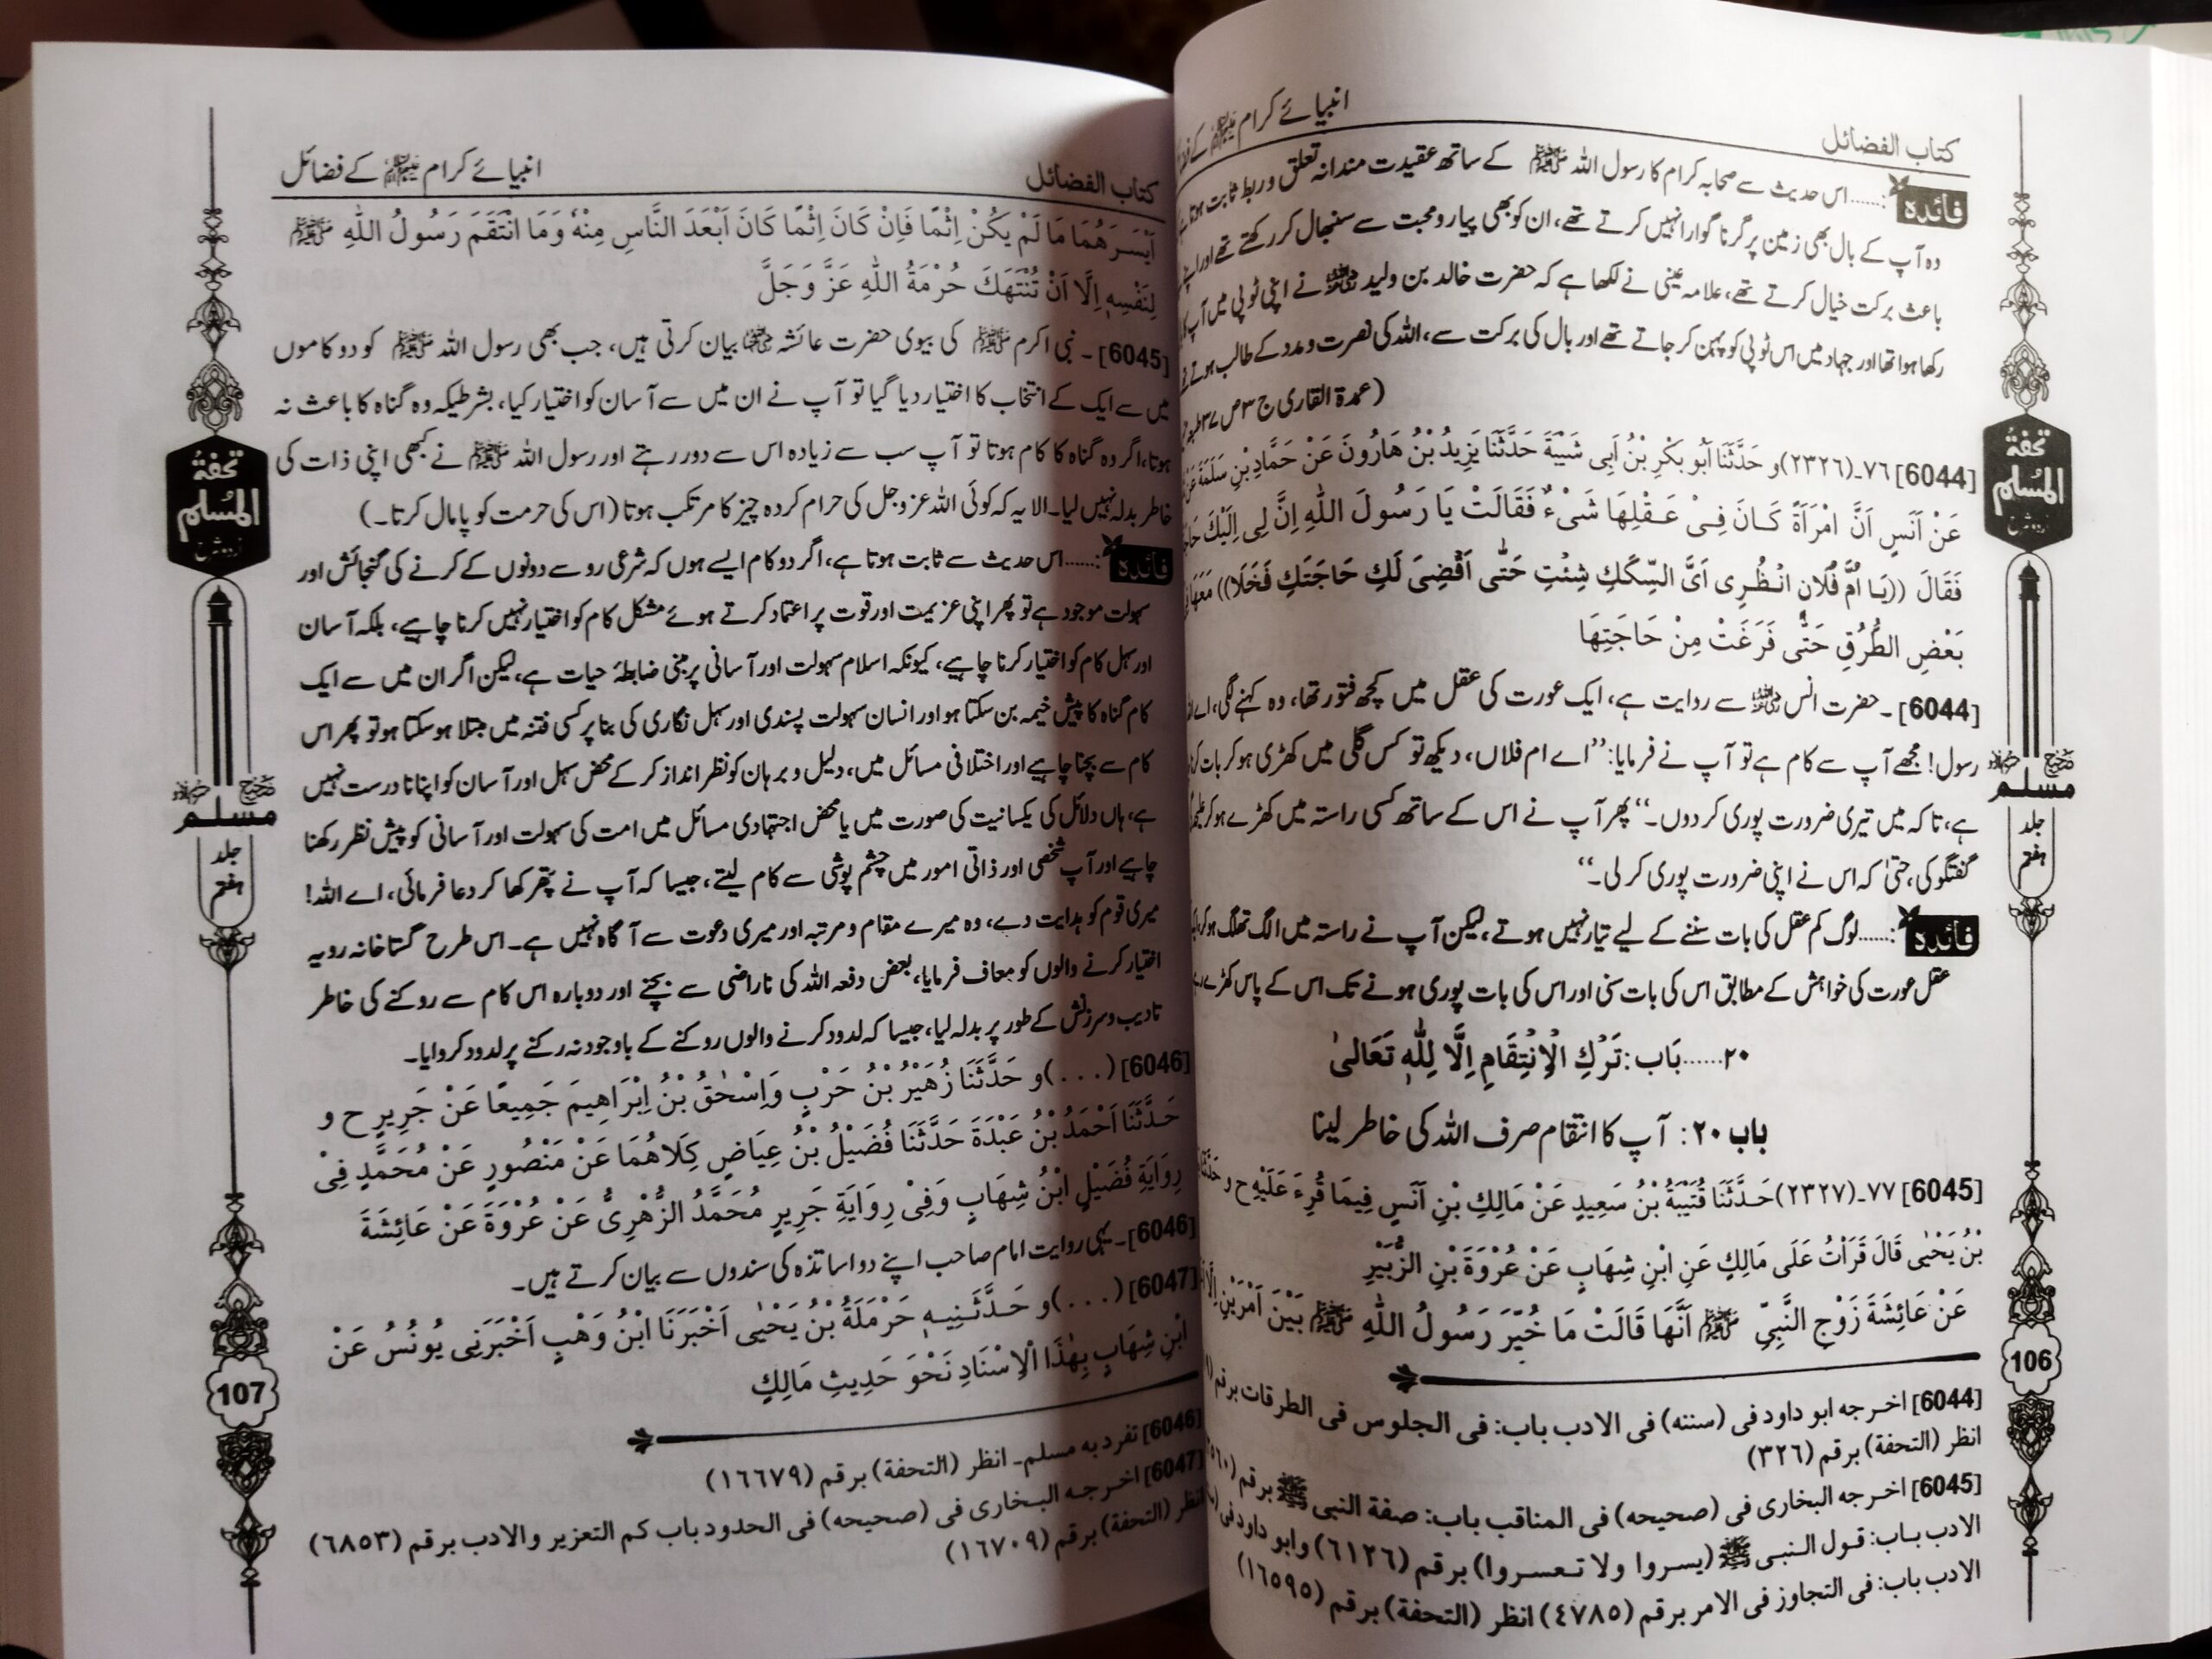 کتاب الفضائل
انبیائے کرام ﷩ کے
فائدہ :......اس حدیث سے صحابہ کرام کا رسول اللہ ﷺ کے ساتھ عقیدت مندانہ تعلق و ربط ثابت ہوتا ہے
وہ آپ کے بال بھی زمین پر گرنا گوارا نہیں کرتے تھے، ان کو بھی پیار و محبت سے سنبھال کر رکھتے تھے اور اپنے
باعث برکت خیال کرتے تھے، علامہ عینی نے لکھا ہے کہ حضرت خالد بن ولید ﷜ نے اپنی ٹوپی میں آپ کا
رکھا ہوا تھا اور جہاد میں اس ٹوپی کو پہن کر جاتے تھے اور بال کی برکت سے، اللہ کی نصرت و مدد کے طالب ہوتے تھے
(عمدۃ القاری ج ۳ ص ۳۷
[6044] ٧٦۔(٢٣٢٦)و حَدَّثَنَا اَبُو بَكْرِ بْنُ اَبِی شَيْبَةَ حَدَّثَنَا يَزِيدُ بْنُ هَارُونَ عَنْ حَمَّادِ بْنِ سَلَمَةَ عَنْ
عَنْ اَنَسٍ اَنَّ امْرَاَةً كَانَ فِیْ عَقْلِهَا شَیْءٌ فَقَالَتْ يَا رَسُولَ اللّٰهِ اِنَّ لِی اِلَيْكَ حَاجَةً
فَقَالَ ((يَا اُمَّ فُلَانٍ انْظُرِی اَیَّ السِّكَكِ شِئْتِ حَتّٰى اَقْضِیَ لَكِ حَاجَتَكِ فَخَلَا)) مَعَهَا فِی
بَعْضِ الطُّرُقِ حَتّٰى فَرَغَتْ مِنْ حَاجَتِهَا
[6044] ۔حضرت انس ﷜ سے روایت ہے، ایک عورت کی عقل میں کچھ فتور تھا، وہ کہنے لگی، اے
رسول! مجھے آپ سے کام ہے تو آپ نے فرمایا: ”اے ام فلاں، دیکھ تو کس گلی میں کھڑی ہو کر بات کرنا
ہے، تا کہ میں تیری ضرورت پوری کر دوں۔“ پھر آپ نے اس کے ساتھ کسی راستہ میں کھڑے ہو کر
گفتگو کی، حتیٰ کہ اس نے اپنی ضرورت پوری کر لی۔“
فائدہ :......لوگ کم عقل کی بات سننے کے لیے تیار نہیں ہوتے، لیکن آپ نے راستہ میں الگ تھلگ ہو کر
عقل عورت کی خواہش کے مطابق اس کی بات سنی اور اس کی بات پوری ہونے تک اس کے پاس کھڑے رہے
٢٠......بَاب: تَرْكِ الْاِنْتِقَامِ اِلَّا لِلّٰهِ تَعَالٰى
باب ۲۰: آپ کا انتقام صرف اللہ کی خاطر لینا
[6045] ٧٧۔(٢٣٢٧)حَدَّثَنَا قُتَيْبَةُ بْنُ سَعِيدٍ عَنْ مَالِكِ بْنِ اَنَسٍ فِيمَا قُرِءَ عَلَيْهِ ح و حَدَّثَنَا
بْنُ يَحْيٰى قَالَ قَرَاْتُ عَلَى مَالِكٍ عَنِ ابْنِ شِهَابٍ عَنْ عُرْوَةَ بْنِ الزُّبَيْرِ
عَنْ عَائِشَةَ زَوْجِ النَّبِیِّ ﷺ اَنَّهَا قَالَتْ مَا خُيِّرَ رَسُولُ اللّٰهِ ﷺ بَيْنَ اَمْرَيْنِ اِلَّا
[6044] اخرجه ابو داود فى (سننه) فى الادب باب: فى الجلوس فى الطرقات برقم
انظر (التحفة) برقم (٣٢٦)
[6045] اخرجه البخارى فى (صحيحه) فى المناقب باب: صفة النبى ﷺ برقم (٣٥٦٠)
الادب باب: قول النبى ﷺ (يسروا ولا تعسروا) برقم (٦١٢٦) وابو داود فى
الادب باب: فى التجاوز فى الامر برقم (٤٧٨٥) انظر (التحفة) برقم (١٦٥٩٥)
تحفة
المسلم
اردو شرح
صحیح
مسلم
جلد
ہفتم
106
کتاب الفضائل
انبیائے کرام ﷩ کے فضائل
اَيْسَرَهُمَا مَا لَمْ يَكُنْ اِثْمًا فَاِنْ كَانَ اِثْمًا كَانَ اَبْعَدَ النَّاسِ مِنْهُ وَمَا انْتَقَمَ رَسُولُ اللّٰهِ ﷺ
لِنَفْسِهٖ اِلَّا اَنْ تُنْتَهَكَ حُرْمَةُ اللّٰهِ عَزَّ وَجَلَّ
[6045] ۔ نبی اکرم ﷺ کی بیوی حضرت عائشہ ﷞ بیان کرتی ہیں، جب بھی رسول اللہ ﷺ کو دو کاموں
میں سے ایک کے انتخاب کا اختیار دیا گیا تو آپ نے ان میں سے آسان کو اختیار کیا، بشرطیکہ وہ گناہ کا باعث نہ
ہوتا، اگر وہ گناہ کا کام ہوتا تو آپ سب سے زیادہ اس سے دور رہتے اور رسول اللہ ﷺ نے کبھی اپنی ذات کی
خاطر بدلہ نہیں لیا۔ الا یہ کہ کوئی اللہ عزوجل کی حرام کردہ چیز کا مرتکب ہوتا (اس کی حرمت کو پامال کرتا۔)
فائدہ :......اس حدیث سے ثابت ہوتا ہے، اگر دو کام ایسے ہوں کہ شرعی رو سے دونوں کے کرنے کی گنجائش اور
سہولت موجود ہے تو پھر اپنی عزیمت اور قوت پر اعتماد کرتے ہوئے مشکل کام کو اختیار نہیں کرنا چاہیے، بلکہ آسان
اور سہل کام کو اختیار کرنا چاہیے، کیونکہ اسلام سہولت اور آسانی پر مبنی ضابطۂ حیات ہے، لیکن اگر ان میں سے ایک
کام گناہ کا پیش خیمہ بن سکتا ہو اور انسان سہولت پسندی اور سہل نگاری کی بنا پر کسی فتنہ میں مبتلا ہو سکتا ہو تو پھر اس
کام سے بچنا چاہیے اور اختلافی مسائل میں، دلیل و برہان کو نظر انداز کر کے محض سہل اور آسان کو اپنانا درست نہیں
ہے، ہاں دلائل کی یکسانیت کی صورت میں یا محض اجتہادی مسائل میں امت کی سہولت اور آسانی کو پیش نظر رکھنا
چاہیے اور آپ شخصی اور ذاتی امور میں چشم پوشی سے کام لیتے، جیسا کہ آپ نے پتھر کھا کر دعا فرمائی، اے اللہ!
میری قوم کو ہدایت دے، وہ میرے مقام و مرتبہ اور میری دعوت سے آگاہ نہیں ہے۔ اس طرح گستاخانہ رویہ
اختیار کرنے والوں کو معاف فرمایا، بعض دفعہ اللہ کی ناراضی سے بچنے اور دوبارہ اس کام سے روکنے کی خاطر
تادیب و سرزنش کے طور پر بدلہ لیا، جیسا کہ لدود کرنے والوں روکنے کے باوجود نہ رکنے پر لدود کروایا۔
[6046] (...)و حَدَّثَنَا زُهَيْرُ بْنُ حَرْبٍ وَاِسْحٰقُ بْنُ اِبْرَاهِيمَ جَمِيعًا عَنْ جَرِيرٍ ح و
حَدَّثَنَا اَحْمَدُ بْنُ عَبْدَةَ حَدَّثَنَا فُضَيْلُ بْنُ عِيَاضٍ كِلَاهُمَا عَنْ مَنْصُورٍ عَنْ مُحَمَّدٍ فِیْ
رِوَايَةِ فُضَيْلٍ ابْنُ شِهَابٍ وَفِیْ رِوَايَةِ جَرِيرٍ مُحَمَّدٌ الزُّهْرِیُّ عَنْ عُرْوَةَ عَنْ عَائِشَةَ
[6046]۔ یہی روایت امام صاحب اپنے دو اساتذہ کی سندوں سے بیان کرتے ہیں۔
[6047] (...)و حَدَّثَنِيهِ حَرْمَلَةُ بْنُ يَحْيٰى اَخْبَرَنَا ابْنُ وَهْبٍ اَخْبَرَنِی يُونُسُ عَنْ
ابْنِ شِهَابٍ بِهٰذَا الْاِسْنَادِ نَحْوَ حَدِيثِ مَالِكٍ
[6046] تفرد به مسلم۔ انظر (التحفة) برقم (١٦٦٧٩)
[6047] اخرجه البخارى فى (صحيحه) فى الحدود باب كم التعزير والادب برقم (٦٨٥٣)
انظر (التحفة) برقم (١٦٧٠٩)
تحفة
المسلم
اردو شرح
صحیح
مسلم
جلد
ہفتم
107